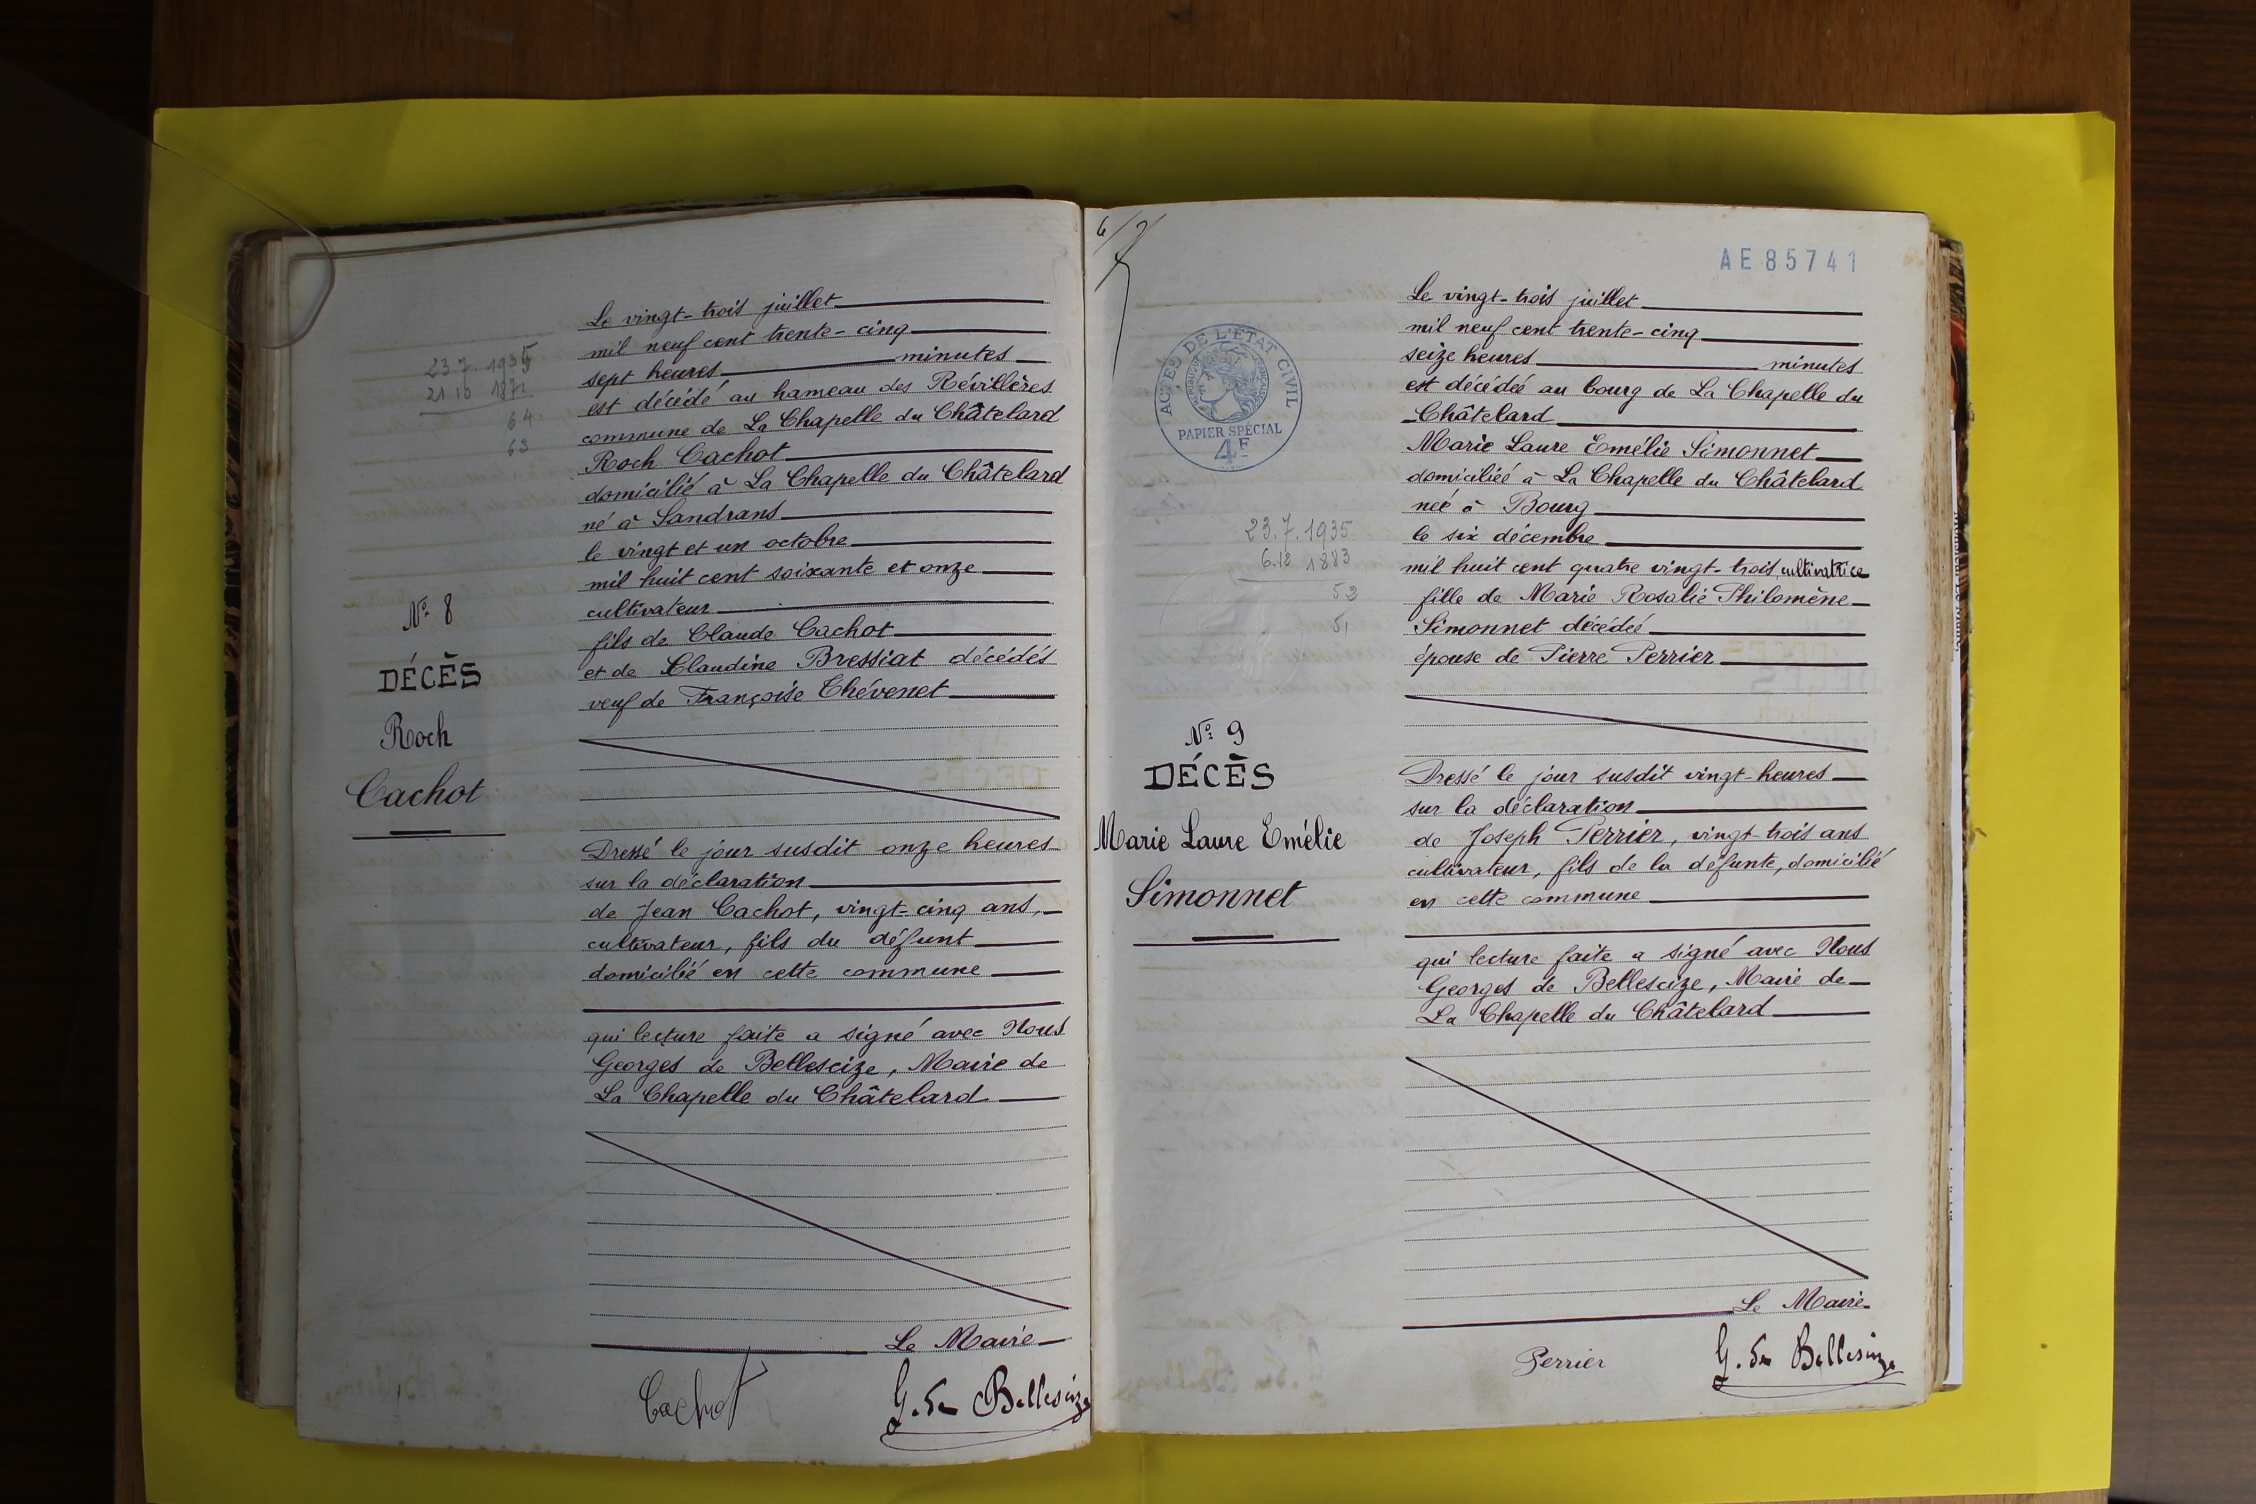 23.7.1935
21 10 1871
64
63
N° 8
DÉCÈS
Roch
Cachot
Le vingt-trois juillet
mil neuf cent trente-cinq
sept heures minutes
est décédé au hameau des Révillères
commune de La Chapelle du Châtelard
Roch Cachot
domicilié à La Chapelle du Châtelard
né à Sandrans
le vingt et un octobre
mil huit cent soixante et onze
cultivateur
fils de Claude Cachot
et de Claudine Bressiat décédés
veuf de Françoise Chévenet
Dressé le jour susdit onze heures
sur la déclaration
de Jean Cachot, vingt-cinq ans,
cultivateur, fils du défunt
domicilié en cette commune
qui lecture faite a signé avec Nous
Georges de Bellescize, Maire de
La Chapelle du Châtelard
Le Maire
Cachot
G. de Bellescize
AE 85741
ACTES DE L'ÉTAT CIVIL
PAPIER SPÉCIAL
4F
23.7.1935
6.12 1883
52
51
N° 9
DÉCÈS
Marie Laure Emélie
Simonnet
Le vingt-trois juillet
mil neuf cent trente-cinq
seize heures minutes
est décédée au bourg de La Chapelle du
Châtelard
Marie Laure Emélie Simonnet
domiciliée à La Chapelle du Châtelard
née à Bourg
le six décembre
mil huit cent quatre vingt-trois, cultivatrice
fille de Marie Rosalie Philomène
Simonnet décédée
épouse de Pierre Perrier
Dressé le jour susdit vingt-heures
sur la déclaration
de Joseph Perrier, vingt-trois ans
cultivateur, fils de la défunte, domicilié
en cette commune
qui lecture faite a signé avec Nous
Georges de Bellescize, Maire de
La Chapelle du Châtelard
Le Maire
Perrier
G. de Bellescize